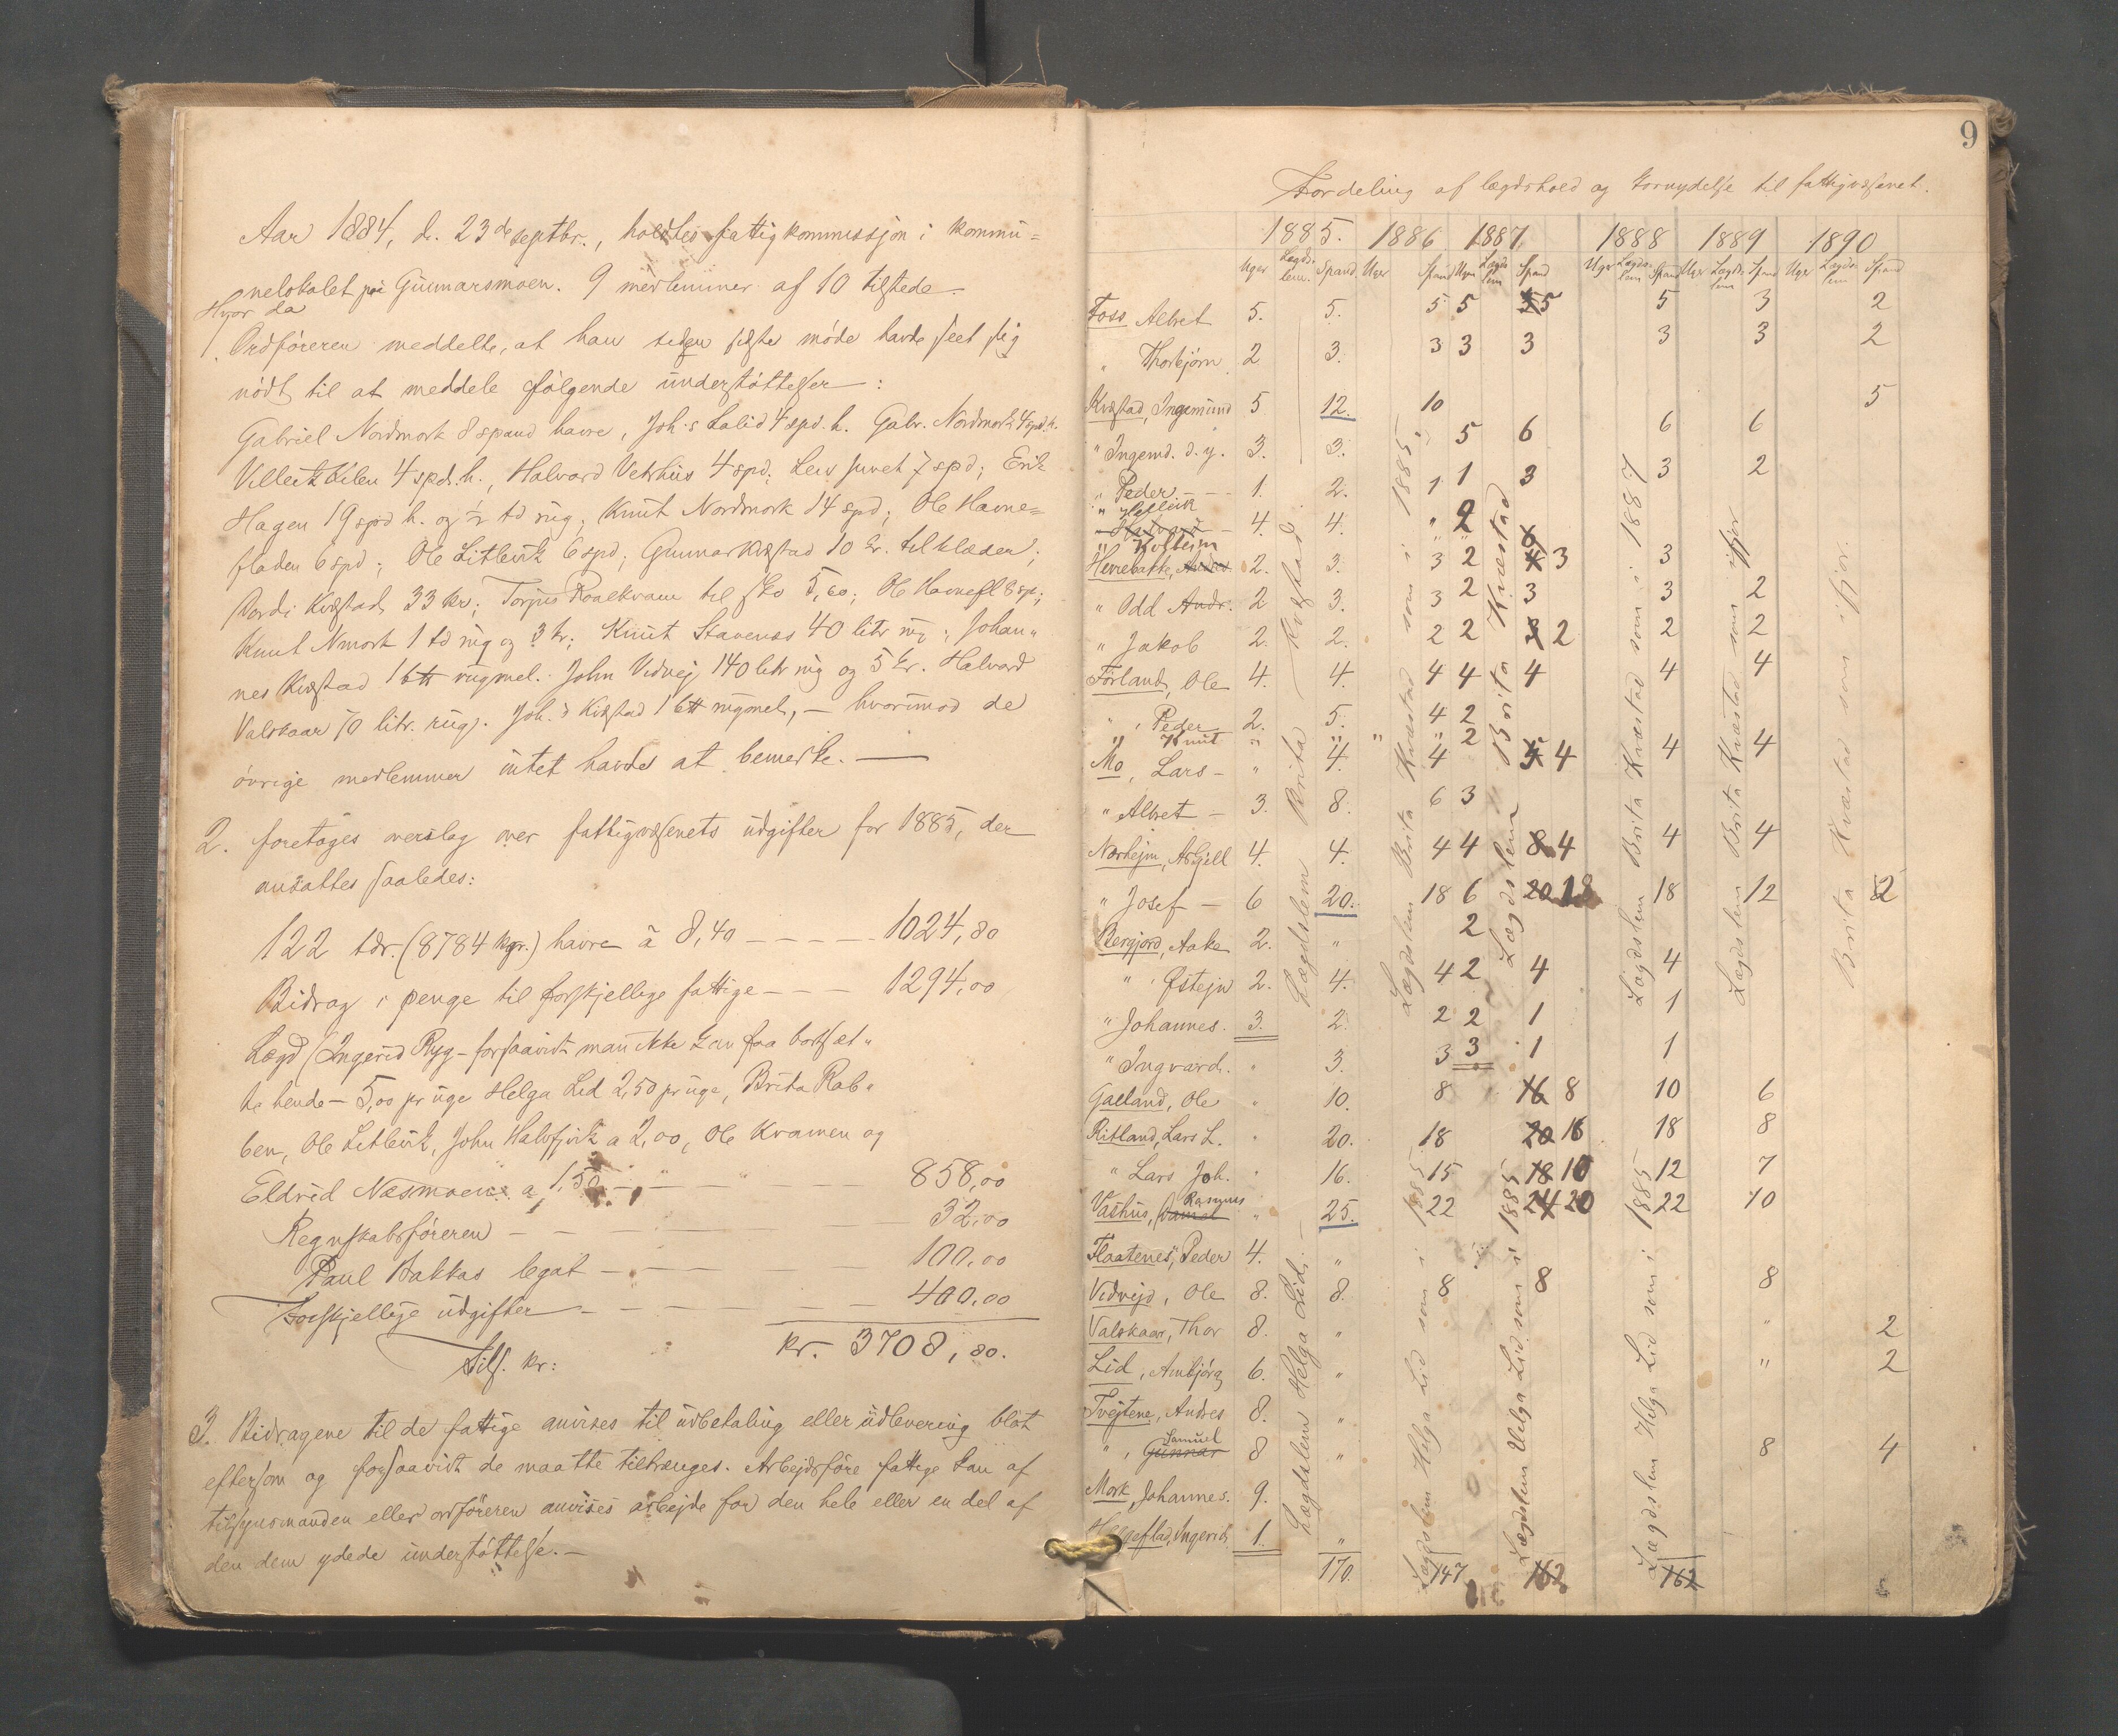 Aar 1884, d. 23de septbr., holdtes fattigkommissjon i kommu=
nelokalet på Gunnarsmoen. 9 medlemmer af 10 tilstede.
Hvor da
1. Ordføreren meddelte, at han siden sidste møde havde seet sig
nødt til at meddele følgende understøttelser:
Gabriel Nordmork 8 spand havre, Joh.s Lalid 4 spd. h. Gabr. Nordmork 4 spd. h.
Kilen 4 spd. h., Halvard Vetrhus 4 spd; Lars Juvet 7 spd; Erik
Hagen 19 spd h. og ½ td rug; Knut Nordmork 14 spd; Ole Havne=
fladen 6 spd; Ole Litlevik 6 spd; Gunnar Kvæstad 10 kr. til klæder;
Kvæstad 33 kr; Torjus Roalkvam til sko 5,00; Ole Havnefl 8 sp;
Knut Nmork 1 td rug og 3 kr; Knut Stavenes 40 litr rug; Johan„
nes Kvæstad 1 btt rugmel. John Vidvej 140 litr rug og 5 kr. Halvard
Valskaar 70 litr. rug. Joh.s Kvæstad 1 btt rugmel, — hvorimod de
øvrige medlemmer intet havde at bemerke. —
2. foretoges overslag over fattigvæsenets udgifter for 1885, der
ansattes saaledes:
122 tdr. (8784 kgr.) havre à 8,40 — — — — 1024,80
Bidrag i penge til forskjellige fattige — — — 1294,00
Lægd (Ingerid Ryg - forsaavidt man ikke kan faa bortsæt„
te hende — 5,00 pr uge Helga Lid 2,50 pr uge, Brita Rab„
ben, Ole Litlevik, John Halvfjvik a 2,00, Ole Kvamen og
Eldrid Næsmoen a 1,50 — „ — „ — 858,00
Regnskabsføreren — — — — — 32,00
Paul Bakkas legat — — — — — 100,00
Forskjellige udgifter — — — — — 400,00
Tils. kr: kr. 3708,80.
3. Bidragene til de fattige anvises til udbetaling eller udlevering blot
eftersom og forsaavidt de maatte tiltrænges. Arbejdsføre fattige kan af
tilsynsmanden eller ordføreren anvises arbejde for den hele eller en del af
den dem ydede understøttelse. —
9
Fordeling af lægdshold og kornydelse til fattigvæsenet.
1885. 1886 1887 1888 1889 1890
Uger Lægds-lem. Spand Uger Spand Uger Lægds lem Spand Uger Lægds-lem Spand Uger Lægds-lem Spand Uger Lægds-lem Spand
Foss Albret 5. 5. 5 5 5 5 3 2
„ Thorbjørn 2 3. 3 3 3 3 3 2
Kvæstad, Ingemund 5 12. 10 5
„ Ingemd. d. y. 3. 3. 5 6 6 6
„ Peder — 1. 2. 1 1 3 3 2
„ Helleik
4. 4. „ 2
„ Kolbein
Herrebakke, 2. 3. 3 2 4 3 3
„ Odd Andr. 2 3. 3 2 3 3 2
„ Jakob 2. 2. 2 2 2 2 2
Førland, Ole 4. 4. 4 4 4 4 4
„ , Peder 2. 5. 4 2
„ Knut „ „ „ „ 2
Mo, Lars — „ 4. 4 4 4 4
„ Albret — 3. 8. 6 3
Nærhejm, Asgjell 4. 4. 4 4 8 4 4 4
„ Josef — 6 20. 18 6 20 18 18 12 2
Bergjord, Aake 2. „ 2
„ , Østejn 2. 4. 4 2 4 4
„ Johannes. 3. 2. 2 2 1 1
„ Ingvard. „ 3. 3 3 1 1
Galland, Ole „ 10. 8 16 8 10 6
Ritland, Lars L. „ 20. 18 20 16 18 8
„ Lars Joh. „ 16. 15 18 16 12 7
Rasmus
Vashus, Daniel „ 25. 22 24 20 22 10
Flaatenes, Peder 4. „
Vidvejd, Ole 8. 8. 8 8 8
Valskaar, Thor 8. „ „ 2
Lid, Ambjørg 6. „ „ 2
Tvejtene, Andres 8. „
Samuel
„ , Gunnar 8 „ 8 4
Mork, Johannes. 9.
Ingerid 1. „
170. 147 162 162
Lægdslem Brita Kvæstad
Lægdslem Brita Kvæstad som i 1885.
Lægdslem Brita Kvæstad
Lægdslem Brita Kvæstad som i 1887
Lægdslem Brita Kvæstad som ifjor
Brita Kvæstad som ifjor.
Lægdslem Helga Lid. —
Lægdslem Helga Lid som i 1885
Lægdslem Helga Lid som i 1885
Lægdslem Helga Lid som i 1885